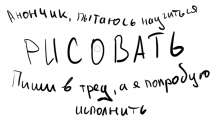 Анончик, пытаюсь научиться
РИСОВАТЬ
Пиши в тред, а я попробую
исполнить